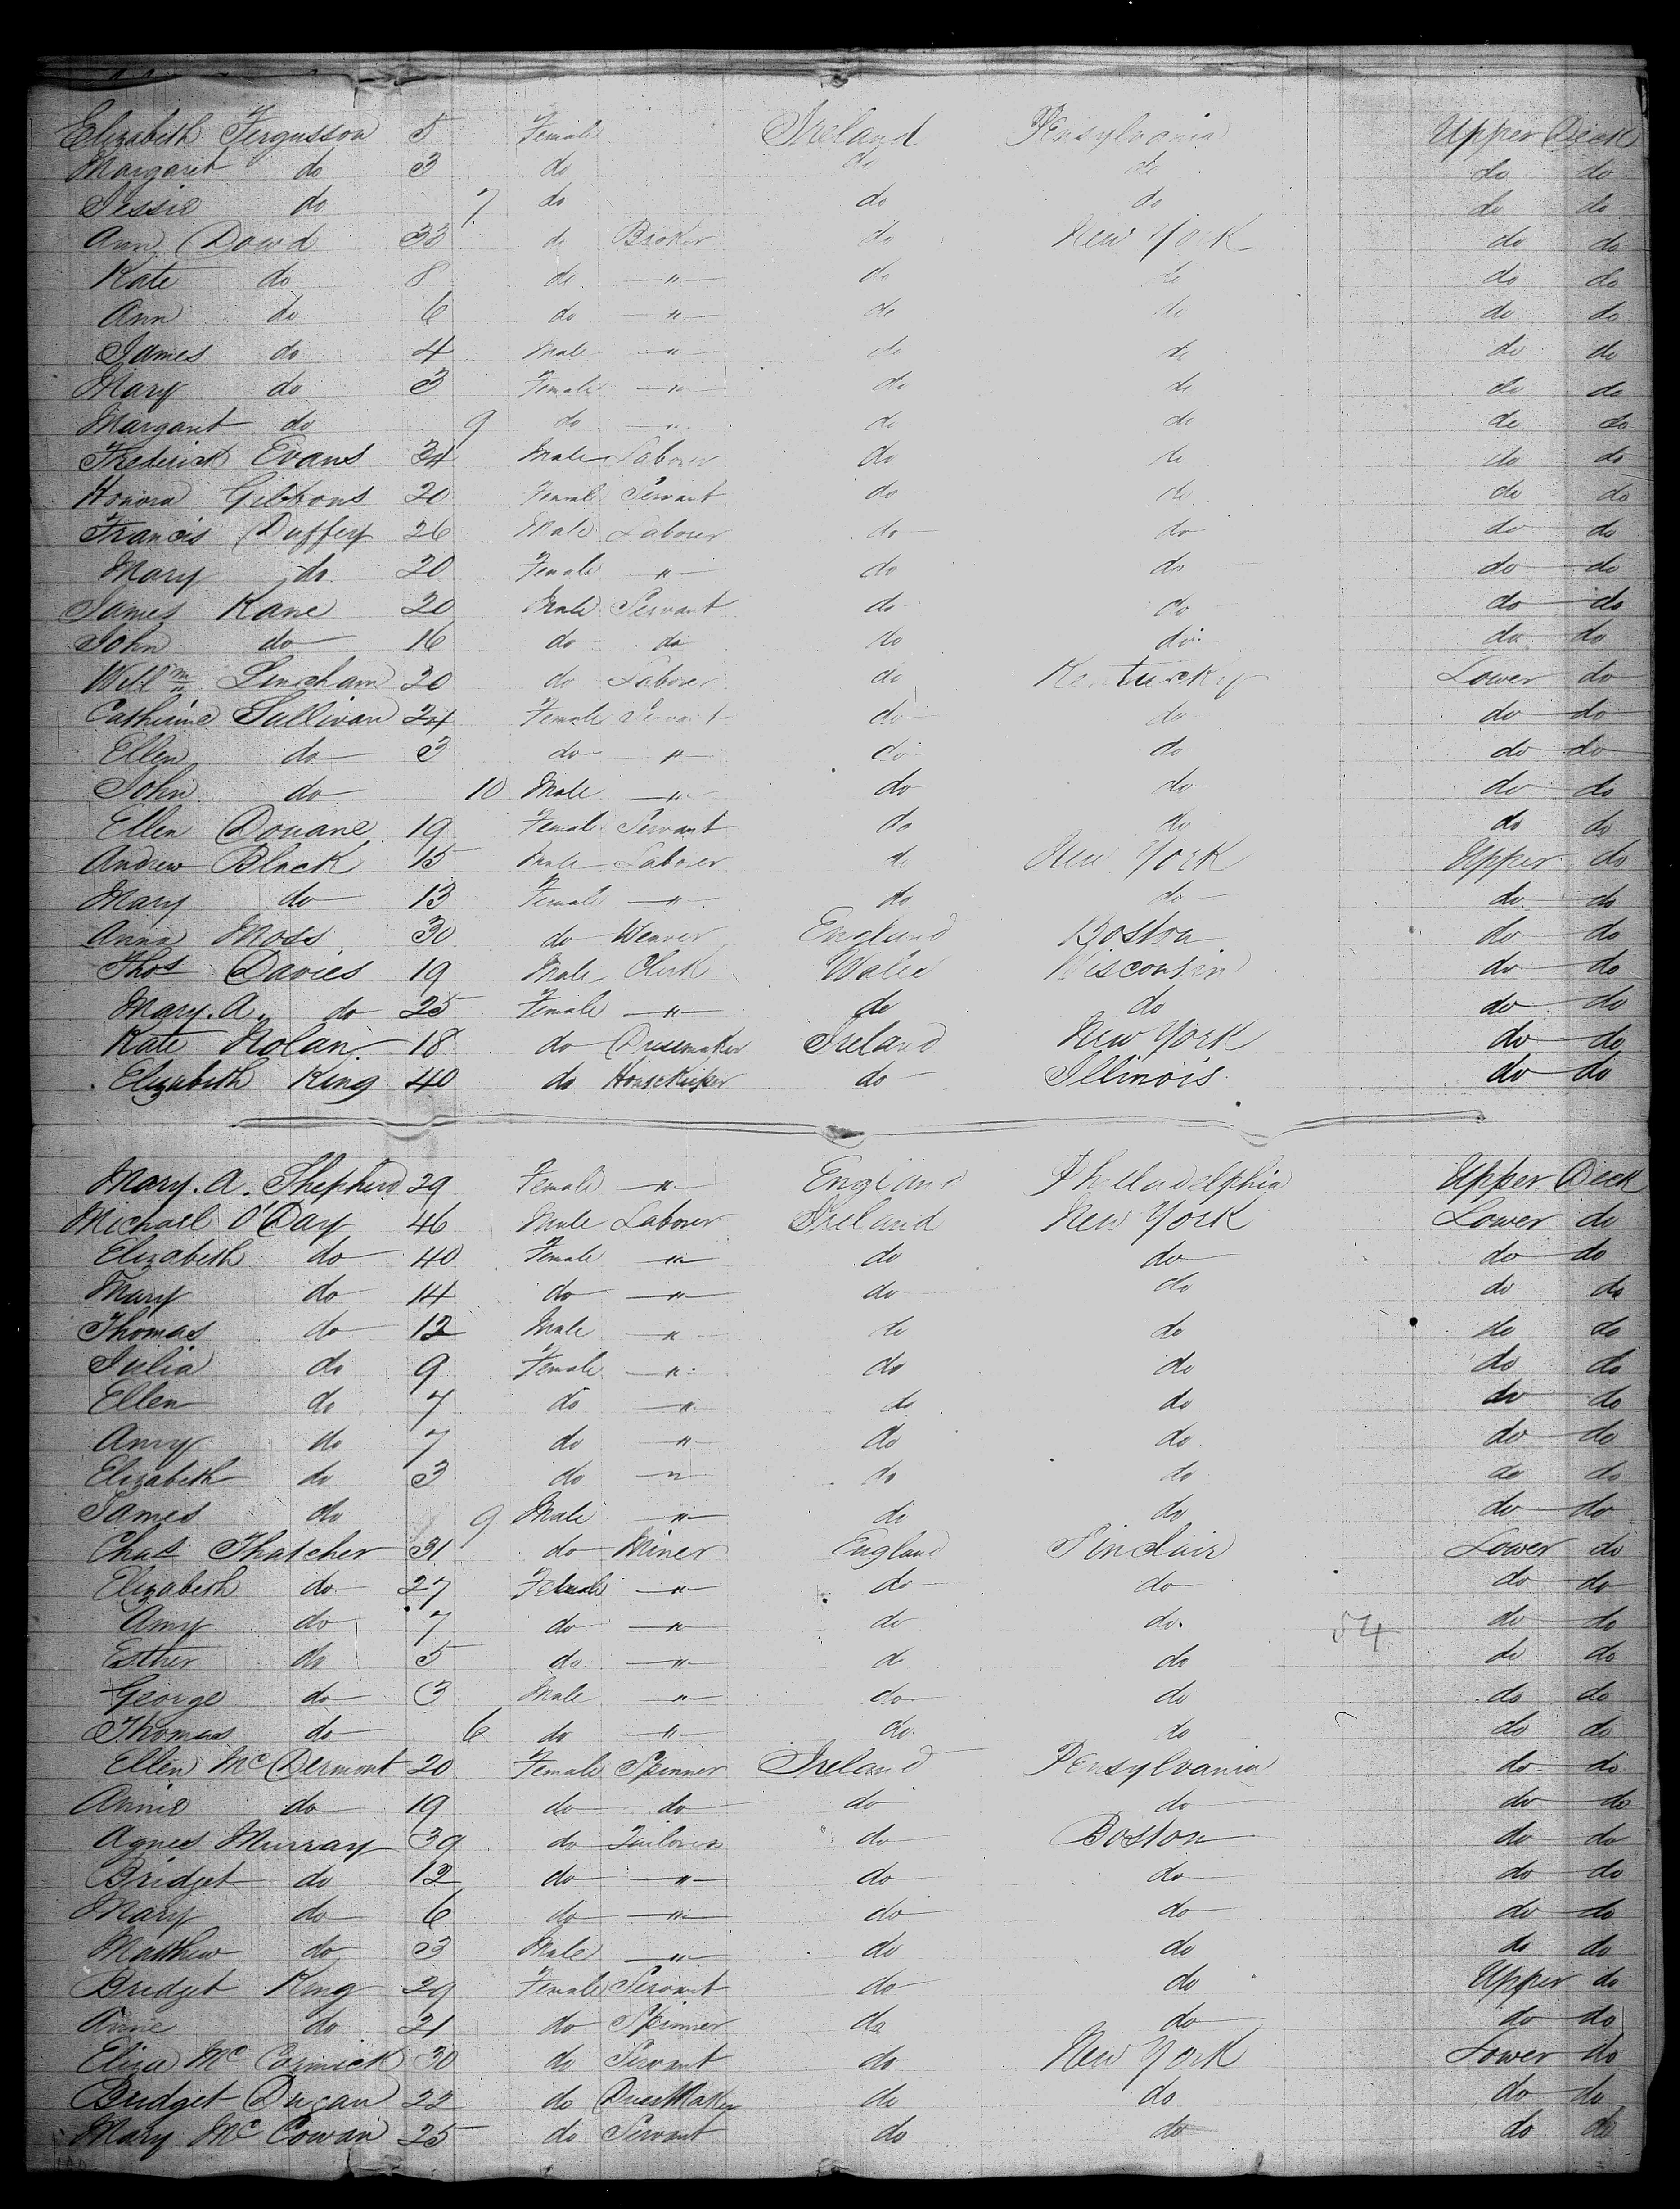 Elizabeth Fergusson 5 Female Ireland Pensylvania Upper Deck
Margaret do 3 do do do do do
Jessie do 7 do do do do do
Ann Dowd 33 do Broker do New York do do
Kate do 8 do " do do do do
Ann do 6 do " do do do do
James do 4 Male " do do do do
Mary do 3 Female " do do do do
Margaret do 9 do " do do do do
Frederick Evans 34 Male Laborer do do do do
Honora Gibbons 20 Female Servant do do do do
Francis Duffey 26 Male Laborer do do do do
Mary do 20 Female " do do do do
James Kane 20 Male Servant do do do do
John do 16 do do do do do do
Will<sup>m</sup> 20 do Laborer do Kentucky Lower do
Catherine Sullivan 24 Female Servant do do do do
Ellen do 3 do " do do do do
John do 10 Male " do do do do
Ellen Douane 19 Female Servant do do do do
Andrew Black 15 Male Laborer do New York Upper do
Mary do 13 Female " do do do do
Anna Moss 30 do Weaver England Boston do do
Thos Davies 19 Male Clerk Wales Wisconsin do do
Mary. A. do 25 Female " do do do do
Kate Nolan 18 do Dressmaker Ireland New York do do
Elizabeth King 40 do HouseKeeper do Illinois do do
Mary. A. Shepherd 29 Female " England Philladelphia Upper Deck
Michael O'Day 46 Male Laborer Ireland New York Lower do
Elizabeth do 40 Female " do do do do
Mary do 14 do " do do do do
Thomas do 12 Male " do do do do
Julia do 9 Female " do do do do
Ellen do 7 do " do do do do
Amy do 7 do " do do do do
Elizabeth do 3 do " do do do do
James do 9 Male " do do do do
Chas Thatcher 31 do Miner England Sinclair Lower do
Elizabeth do 27 Female " do do do do
Amy do 7 do " do do 54 do do
Esther do 5 do " do do do do
George do 3 Male " do do do do
Thomas do 6 do " do do do do
Ellen McDermont 20 Female Spinner Ireland Pensylvania do do
Annie do 19 do do do do do do
Agnes Murray 39 do Tailoress do Boston do do
Bridget do 12 do " do do do do
Mary do 6 do " do do do do
Matthew do 3 Male " do do do do
Bridget King 29 Female Servant do do Upper do
Anne do 21 do Spinner do do do do
Eliza McCormick 30 do Servant do New York Lower do
Bridget Dugan 22 do DressMaker do do do do
Mary McCowan 25 do Servant do do do do